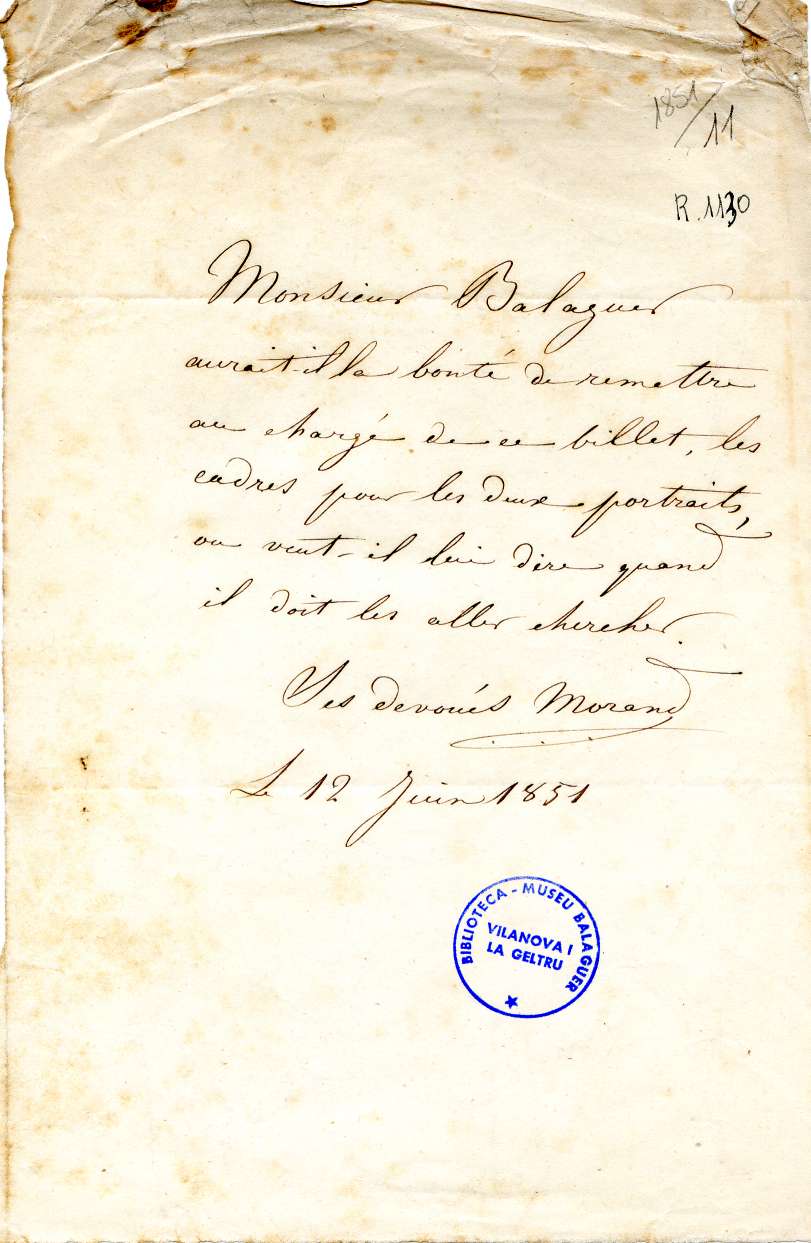 1851/11
R. 1130
Monsieur Balaguer
aurait-il la bonté de remettre
au chargé de ce billet, les
cadres pour les deux portraits,
ou veut-il lui dire quand
il doit les aller chercher.
Ses devoués Morand
Le 12 Juin 1851
BIBLIOTECA - MUSEU BALAGUER
VILANOVA I
LA GELTRU